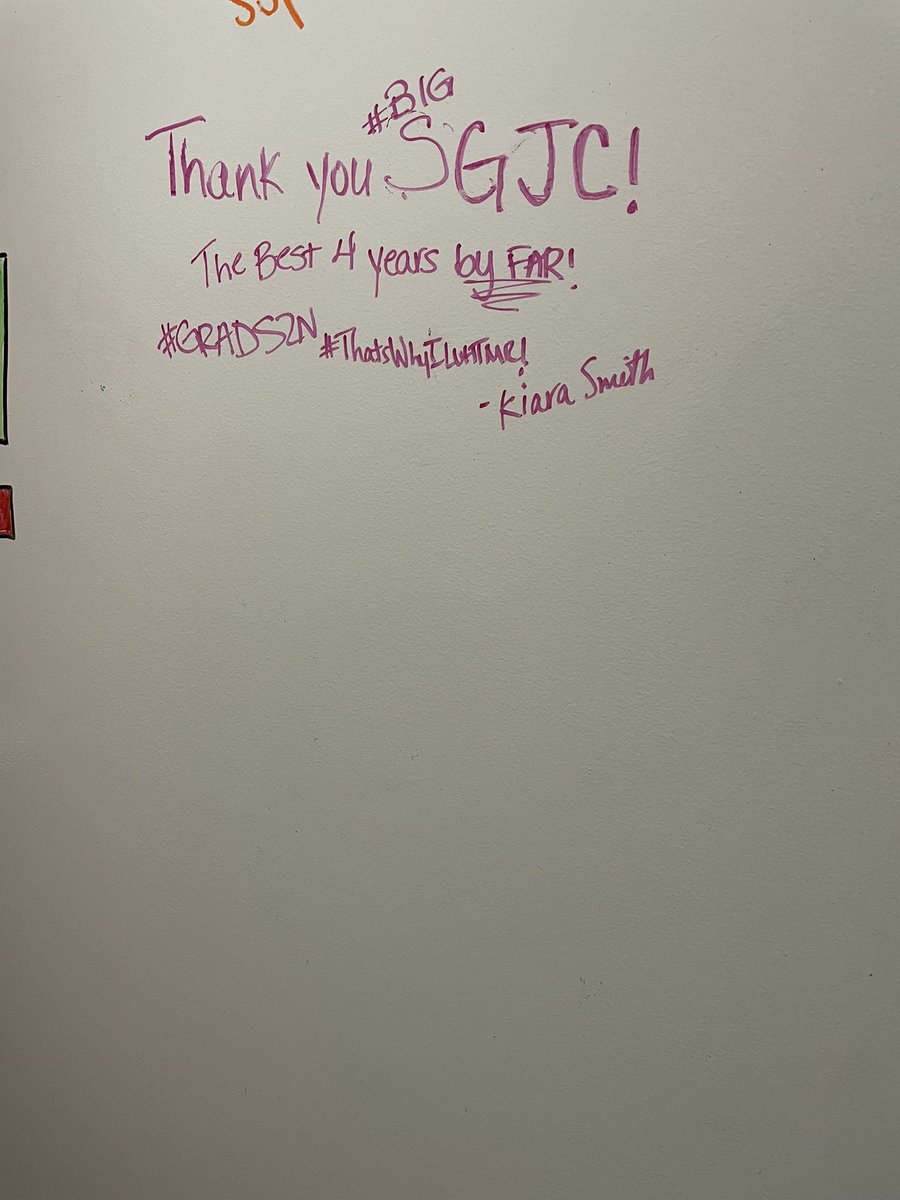 #BIG
Thank you SGJC!
The Best 4 years by FAR!
#GRADSZN #ThatsWhyI
-Kiara Smith